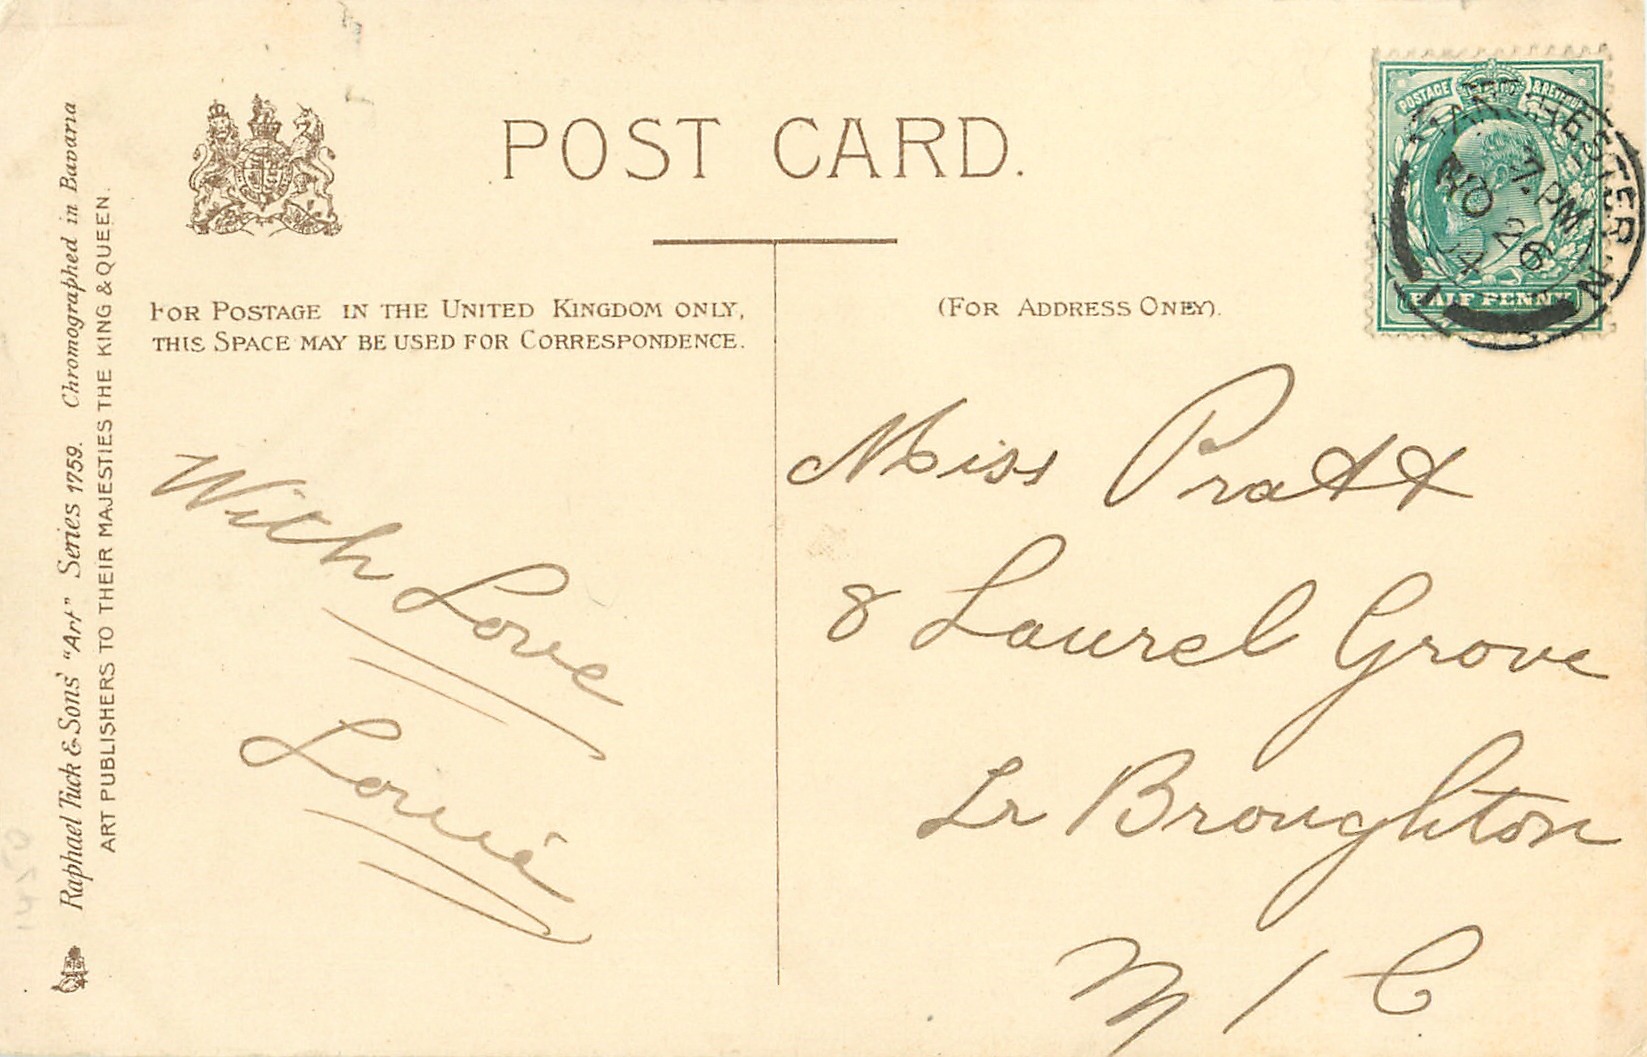 POST CARD.
FOR POSTAGE IN THE UNITED KINGDOM ONLY,
THIS SPACE MAY BE USED FOR CORRESPONDENCE.
(FOR ADDRESS ONLY).
POSTAGE & REVENUE
HALF PENNY
MANCHESTER.N
7.PM
NO 26
Raphael Tuck & Sons' "Art" Series 1759. Chromographed in Bavaria
ART PUBLISHERS TO THEIR MAJESTIES THE KING & QUEEN.
With Love
Louie
Miss Pratt
8 Laurel Grove
Lr Broughton
M/C
1450